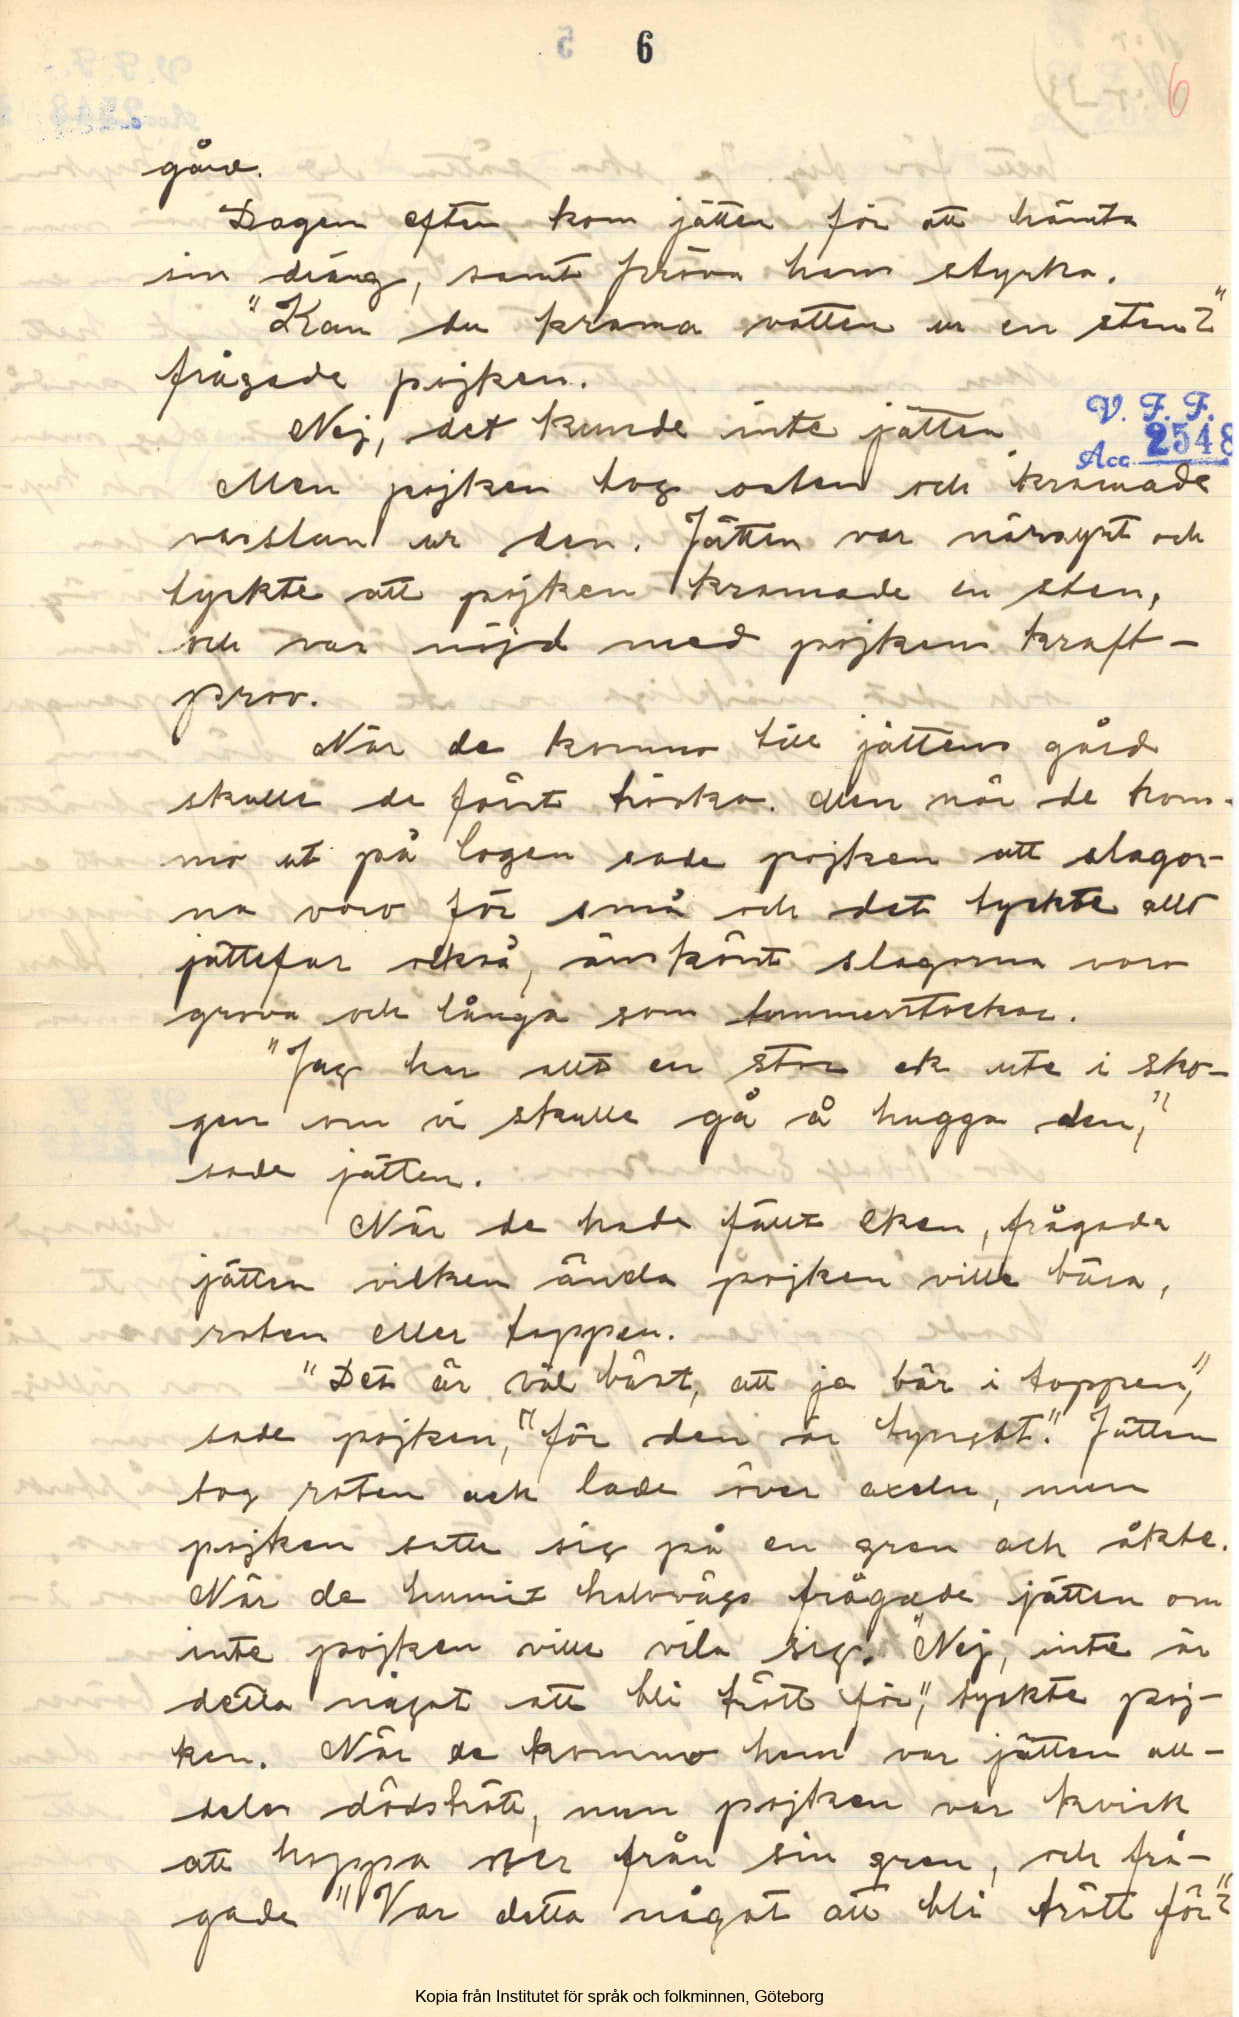 6
6
gård.
Dagen efter kom jätten för att hämta
sin dräng, samt pröva hans styrka.
"Kan du krama vatten ur en sten?"
frågade pojken.
Nej, det kunde inte jätten.
V. F. F.
Acc 2548
Men pojken tog osten och kramade
vasslan ur den. Jätten var närsynt och
tyckte att pojken kramade en sten,
och var nöjd med pojkens kraft-
prov.
När de kommo till jättens gård
skulle de först tröska. Men när de kom-
mo ut på logen sade pojken att slagor-
na voro för små och det tyckte allt
jättefar också, änskönt slagorna voro
grova och långa som timmerstockar.
"Jag har allt en stor ek ute i sko-
gen om vi skulle gå å hugga den,"
sade jätten.
När de hade fällt eken, frågade
jätten vilken ända pojken ville bära,
roten eller toppen.
"Det är väl bäst, att ja bär i toppen,"
sade pojken, "för den är tyngst". Jätten
tog roten och lade över axeln, men
pojken satte sig på en gren och åkte.
När de hunnit halvvägs frågade jätten om
inte pojken ville vila sig. "Nej, inte är
detta något att bli trött för", tyckte poj-
ken. När de kommo hem var jätten all-
deles dödstrött, men pojken var kvick
att hoppa ner från sin gren, och frå-
gade "Var detta något att bli trött för?"
Kopia från Institutet för språk och folkminnen, Göteborg